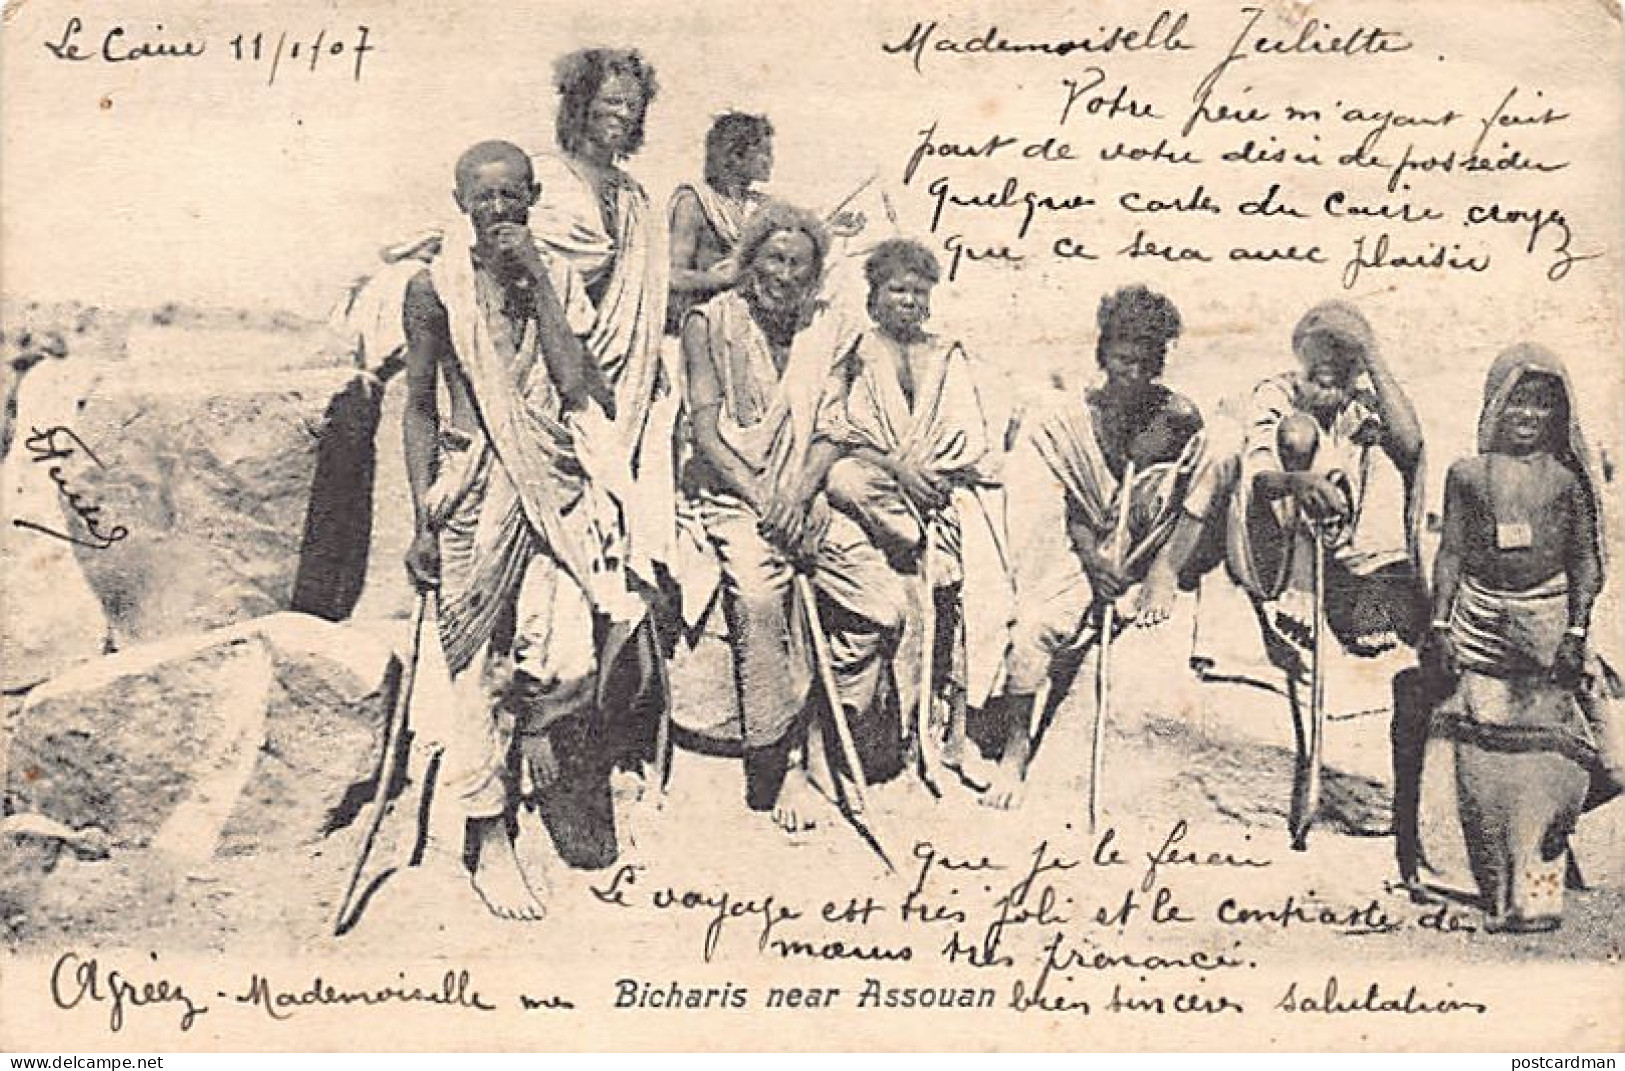 Le Caire 11/1/07
Mademoiselle Juliette.
Votre père m'ayant fait
part de votre désir de posséder
quelques cartes du Caire croyez
que ce sera avec plaisir
que je le ferai
Le voyage est très joli et le contraste de
mœurs très prononcé.
Agréez - Mademoiselle mes bien sincères salutations
Bicharis near Assouan
delcampe.net
postcardman